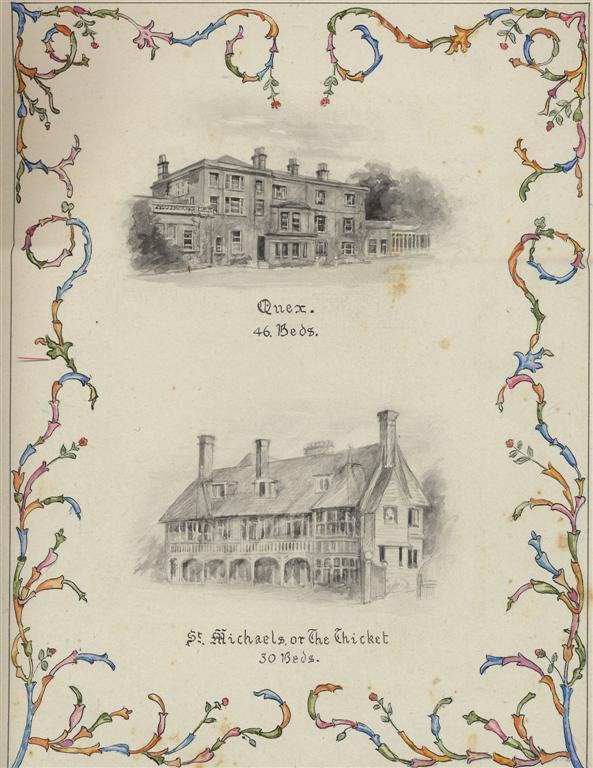 Quex.
46. Beds.
St. Michaels, or The Thicket
30 Beds.